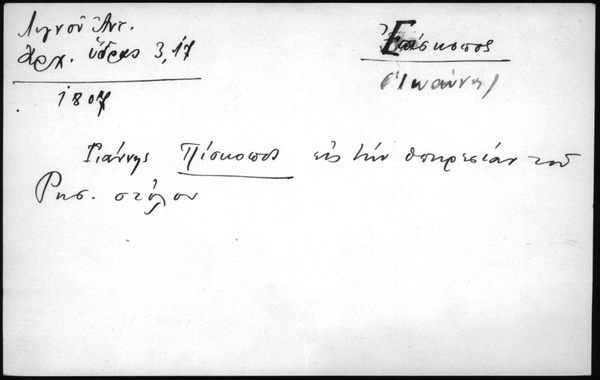 Λιγνοῦ Ἀντ.
Ἀρχ. Ὕδρας 3, 17
1807
Ἐπίσκοπος
(Ἰωάννης)
Γιάννης Πίσκοπος εἰς τὴν ὑπηρεσίαν τοῦ
Ρησ. στόλου